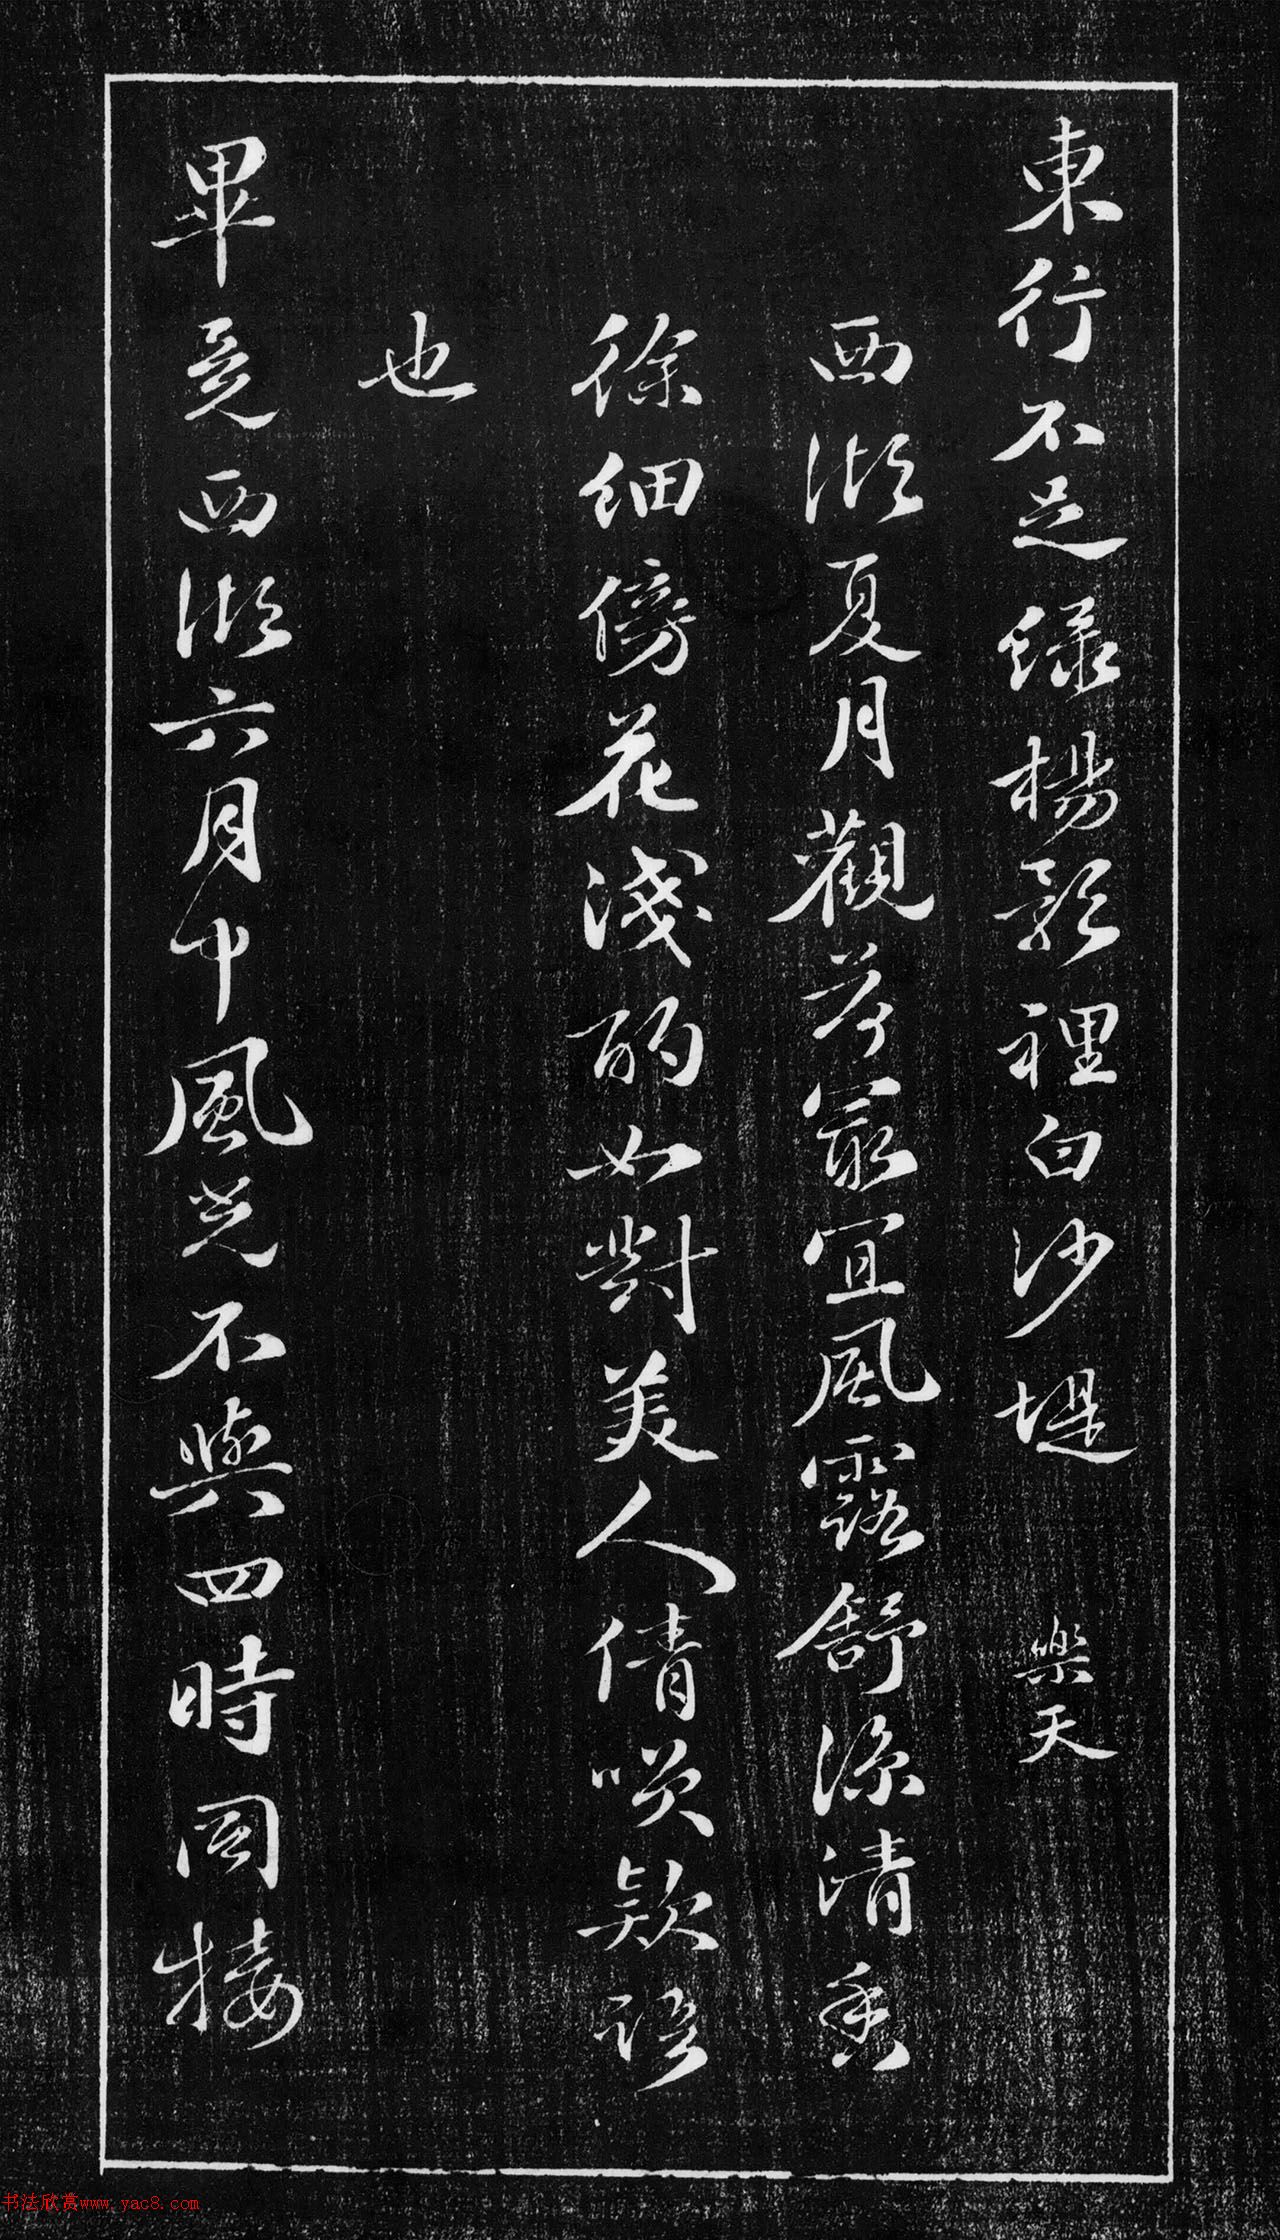 東行不足綠楊影裡白沙堤 樂天
西湖夏月觀荷最宜風露舒涼清香
徐細傍花淺酌如對美人倩笑款語
也
畢竟西湖六月中風光不與四時同 接
书法欣赏www.yac8.com